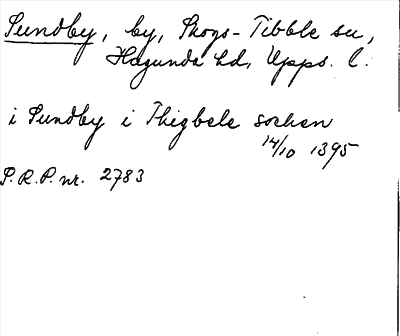 Sundby, by, Skogs-Tibble sn,
Hagunda hd, Upps. l.
i Sundby i Thigbele sochen
14/10 1395
S.R.P. nr. 2783